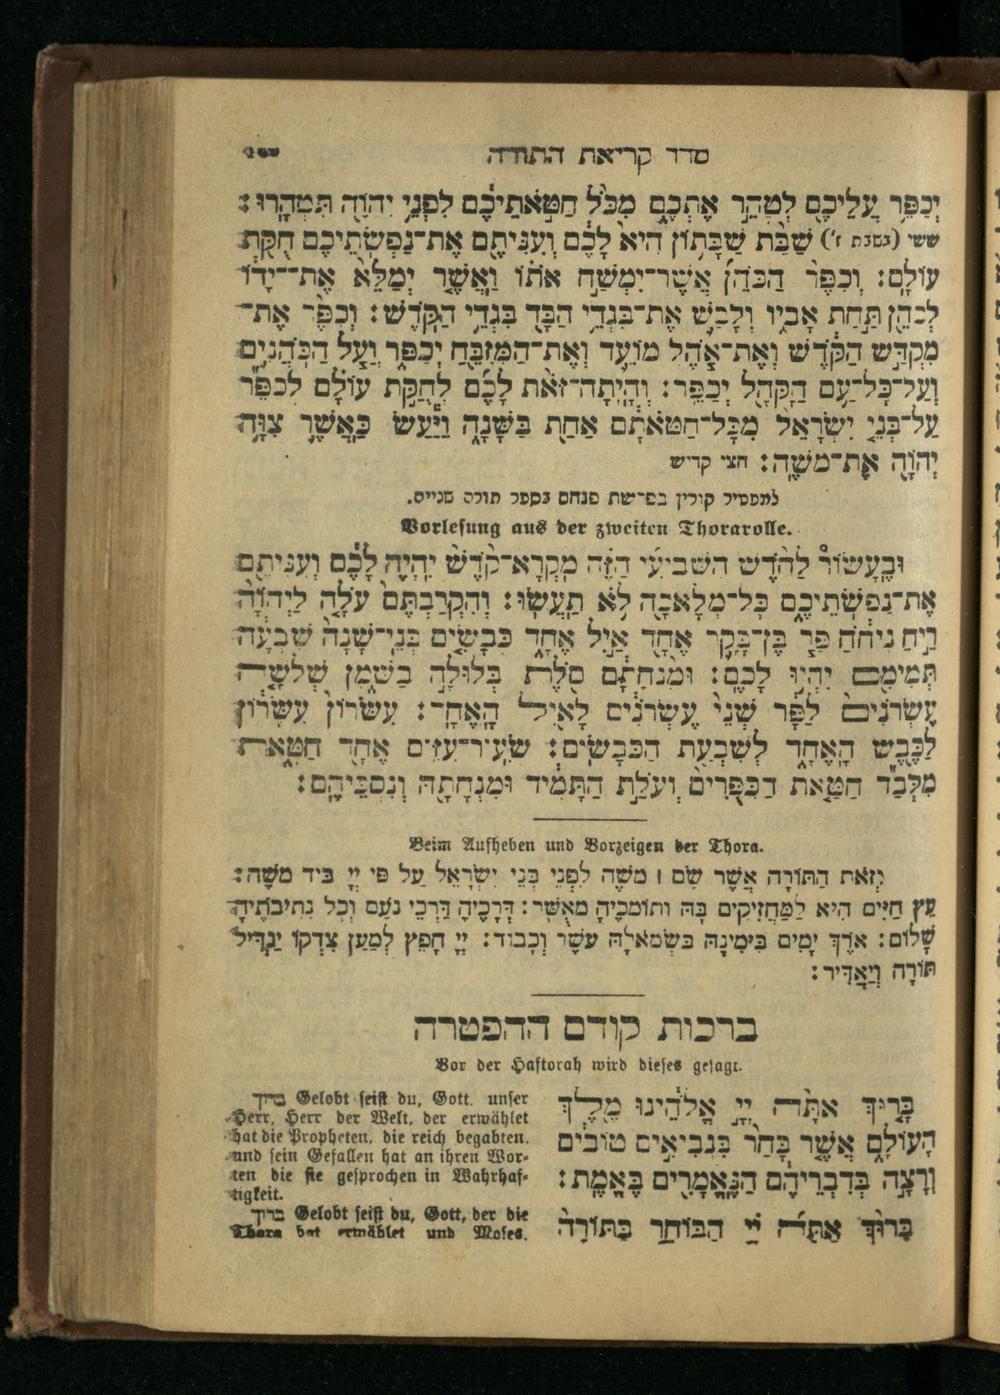 סדר קריאת התורה
יְכַפֵּר עֲלֵיכֶם לְטַהֵר אֶתְכֶם מִכֹּל חַטֹּאתֵיכֶם לִפְנֵי יְהוָה תִּטְהָרוּ:
ששי (בשבת ז') שַׁבַּת שַׁבָּתוֹן הִיא לָכֶם וְעִנִּיתֶם אֶת־נַפְשֹׁתֵיכֶם חֻקַּת
עוֹלָם: וְכִפֶּר הַכֹּהֵן אֲשֶׁר־יִמְשַׁח אֹתוֹ וַאֲשֶׁר יְמַלֵּא אֶת־־יָדוֹ
לְכַהֵן תַּחַת אָבִיו וְלָבַשׁ אֶת־בִּגְדֵי הַבָּד בִּגְדֵי הַקֹּדֶשׁ: וְכִפֶּר אֶת־
מִקְדַּשׁ הַקֹּדֶשׁ וְאֶת־אֹהֶל מוֹעֵד וְאֶת־הַמִּזְבֵּחַ יְכַפֵּר וְעַל הַכֹּהֲנִים
וְעַל־כָּל־עַם הַקָּהָל יְכַפֵּר: וְהָיְתָה־זֹּאת לָכֶם לְחֻקַּת עוֹלָם לְכַפֵּר
עַל־בְּנֵי יִשְׂרָאֵל מִכָּל־חַטֹּאתָם אַחַת בַּשָּׁנָה וַיַּעַשׂ כַּאֲשֶׁר צִוָּה
יְהוָה אֶת־מֹשֶׁה: חצי קדיש
למפטיר קורין בפרשת פנחס בספר תורה שנייה.
Vorlesung aus der zweiten Thorarolle.
וּבֶעָשׂוֹר לַחֹדֶשׁ הַשְּׁבִיעִי הַזֶּה מִקְרָא־קֹדֶשׁ יִהְיֶה לָכֶם וְעִנִּיתֶם
אֶת־נַפְשֹׁתֵיכֶם כָּל־מְלָאכָה לֹא תַעֲשׂוּ: וְהִקְרַבְתֶּם עֹלָה לַיהוָה
רֵיחַ נִיחֹחַ פַּר בֶּן־בָּקָר אֶחָד אַיִל אֶחָד כְּבָשִׂים בְּנֵי־שָׁנָה שִׁבְעָה
תְּמִימִם יִהְיוּ לָכֶם: וּמִנְחָתָם סֹלֶת בְּלוּלָה בַשָּׁמֶן שְׁלֹשָׁה
עֶשְׂרֹנִים לַפָּר שְׁנֵי עֶשְׂרֹנִים לָאַיִל הָאֶחָד: עִשָּׂרוֹן עִשָּׂרוֹן
לַכֶּבֶשׂ הָאֶחָד לְשִׁבְעַת הַכְּבָשִׂים: שְׂעִיר־עִזִּים אֶחָד חַטָּאת
מִלְּבַד חַטַּאת הַכִּפֻּרִים וְעֹלַת הַתָּמִיד וּמִנְחָתָהּ וְנִסְכֵּיהֶם:
Beim Aufheben und Vorzeigen der Thora.
וְזֹאת הַתּוֹרָה אֲשֶׁר שָׂם ו מֹשֶׁה לִפְנֵי בְּנֵי יִשְׂרָאֵל עַל פִּי יְיָ בְּיַד מֹשֶׁה:
עֵץ חַיִּים הִיא לַמַּחֲזִיקִים בָּהּ וְתוֹמְכֶיהָ מְאֻשָּׁר: דְּרָכֶיהָ דַּרְכֵי נֹעַם וְכָל נְתִיבֹתֶיהָ
שָׁלוֹם: אֹרֶךְ יָמִים בִּימִינָהּ בִּשְׂמֹאלָהּ עֹשֶׁר וְכָבוֹד: יְיָ חָפֵץ לְמַעַן צִדְקוֹ יַגְדִּיל
תּוֹרָה וְיַאְדִּיר:
ברכות קודם ההפטרה
Vor der Haftorah wird dieses gesagt.
בָּרוּךְ אַתָּה יְיָ אֱלֹהֵינוּ מֶלֶךְ
הָעוֹלָם אֲשֶׁר בָּחַר בִּנְבִיאִים טוֹבִים
וְרָצָה בְדִבְרֵיהֶם הַנֶּאֱמָרִים בֶּאֱמֶת:
בָּרוּךְ אַתָּה יְיָ הַבּוֹחֵר בַּתּוֹרָה
ברוך Gelobt seist du, Gott. unser
Herr, Herr der Welt, der erwählet
hat die Propheten, die reich begabten,
und sein Gefallen hat an ihren Wor-
ten die sie gesprochen in Wahrhaf-
tigkeit.
ברוך Gelobt seist du, Gott, der die
Thora hat erwählet und Moses,